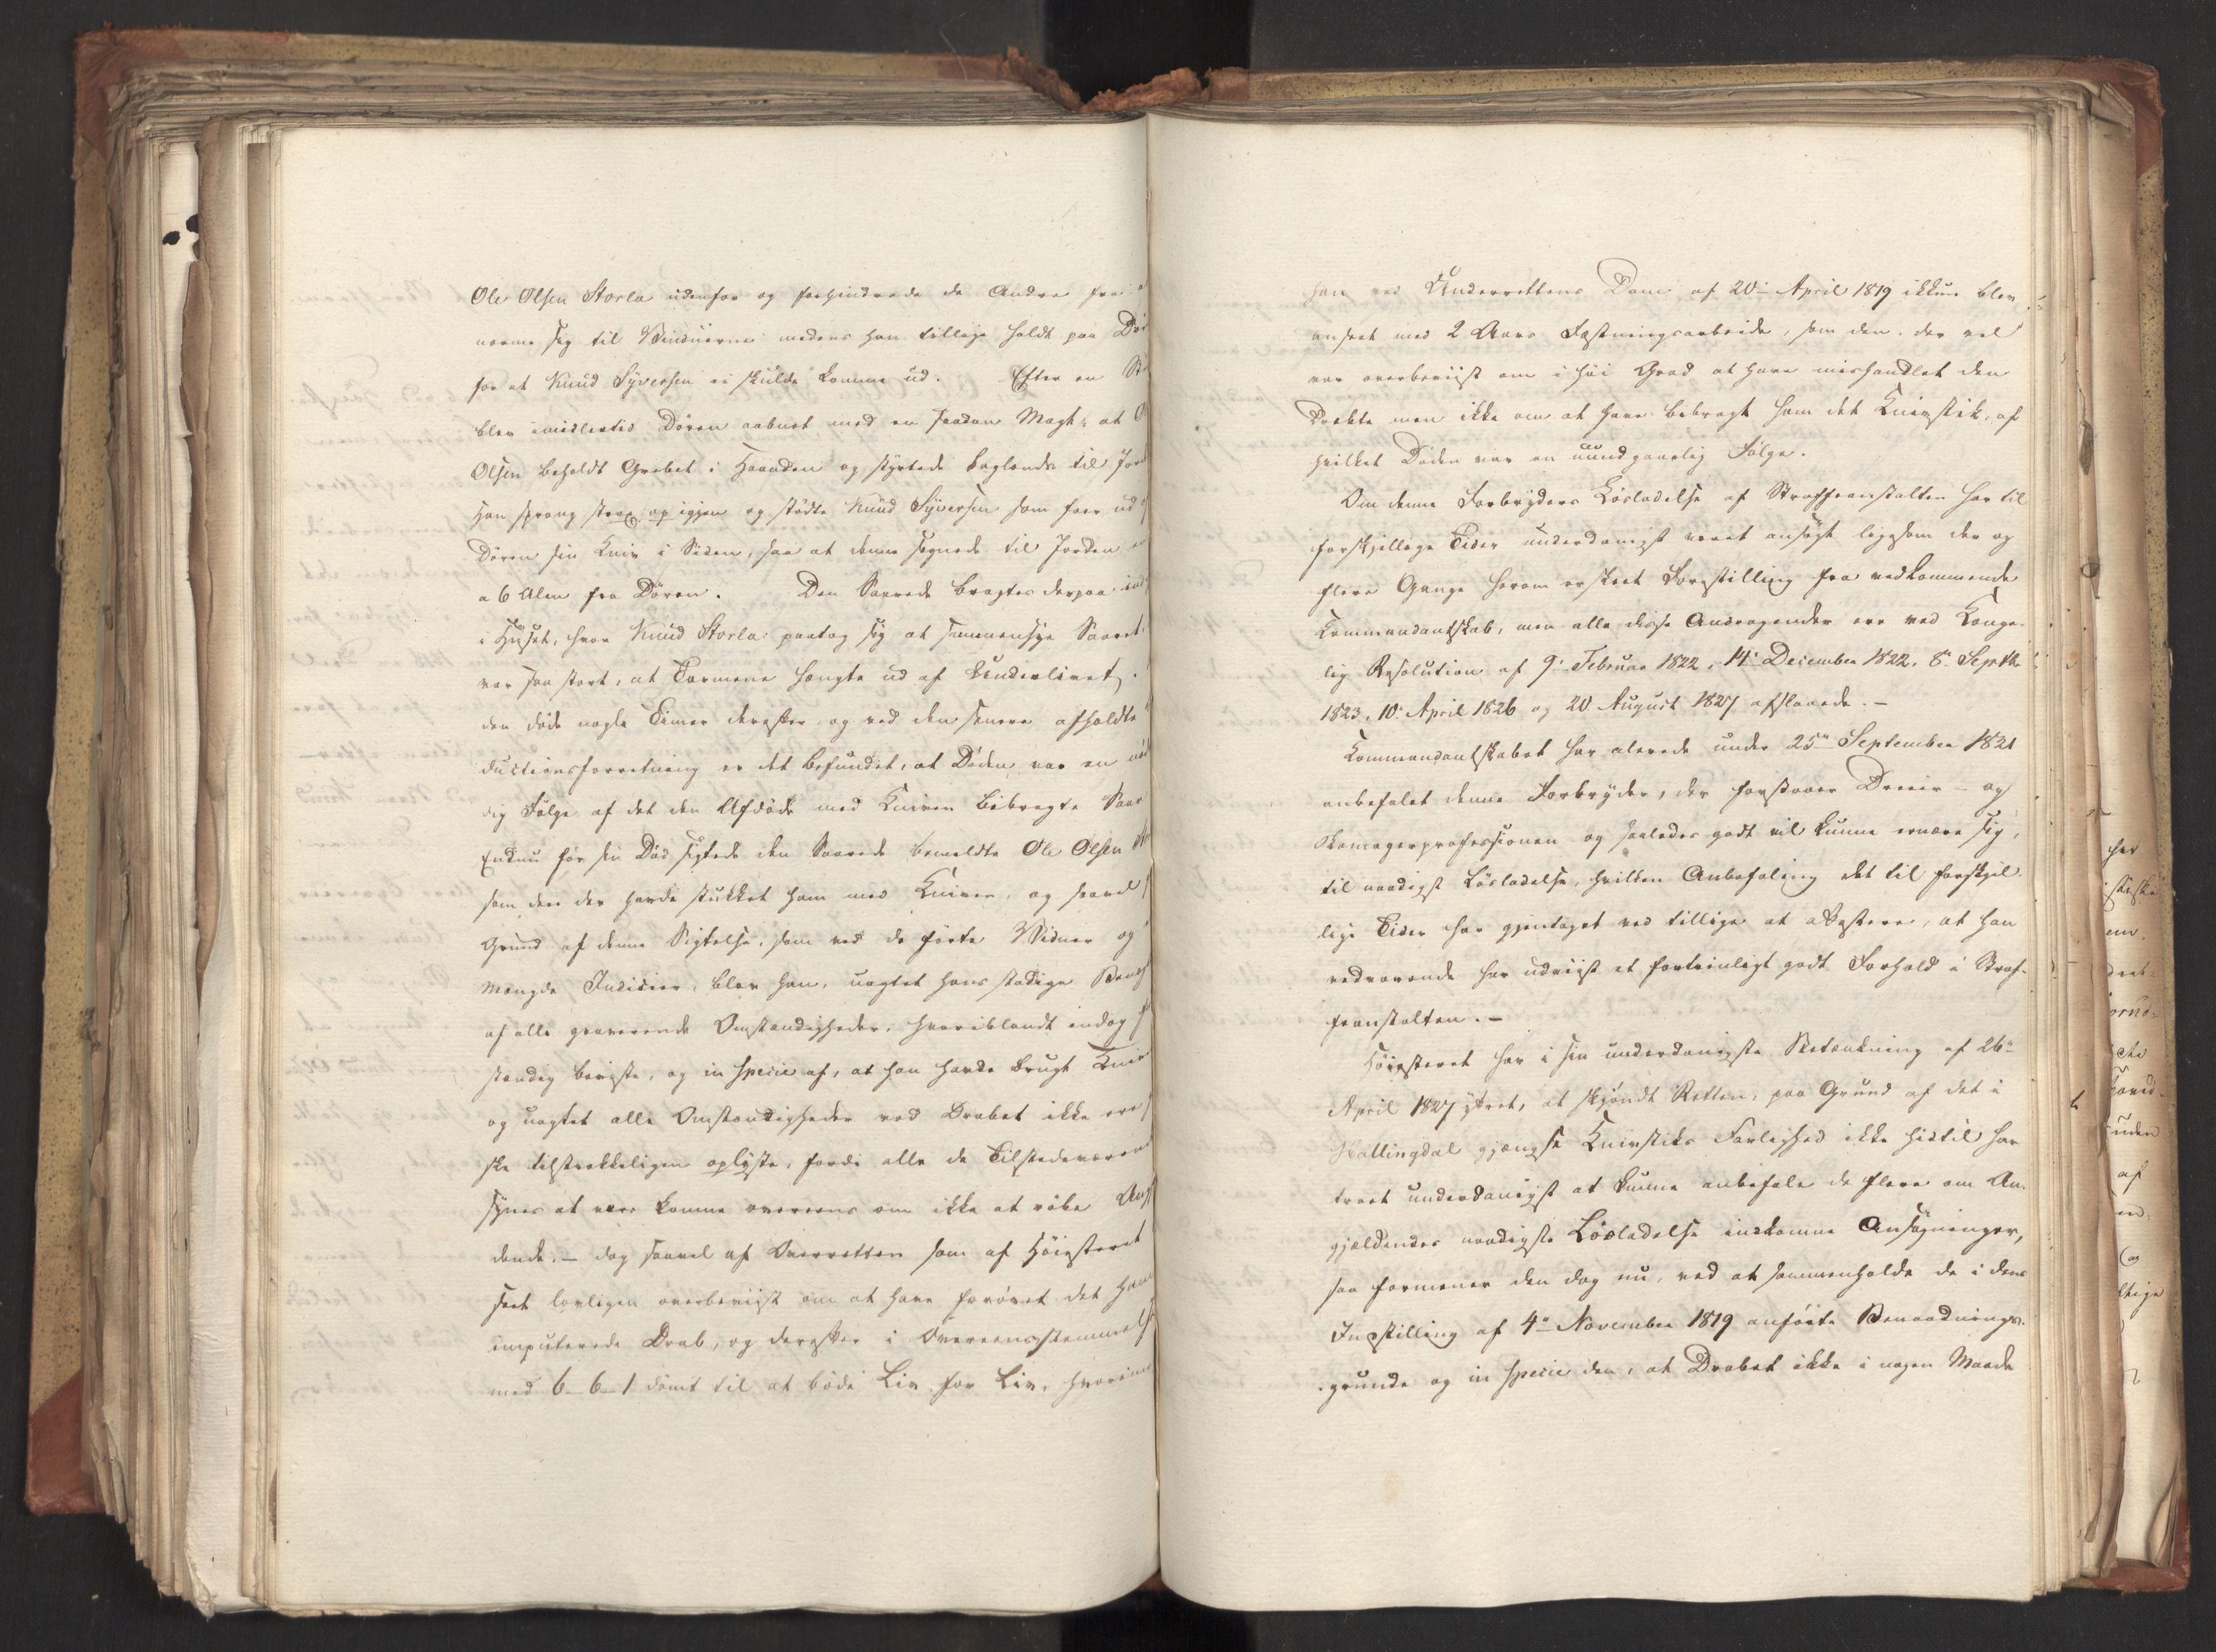 Ole Olsen Storla udenfor og forhindrede de Andre fra
nærme sig til Vinduerne medens han tillige holdt paa Dø
for at Knud Syversen ei skulde komme ud. Efter en
blev imidlertid Døren aabnet med en saadan Magt, at
Olsen beholdt Grebet i Haanden og styrtede baglænds til Jord
Han sprang strax op igjen og stødte Knud Syversen som foer ud
Døren sin Kniv i Siden, saa at denne segnede til Jorden
a 6 Alen fra Døren. Den Saarede bragtes derpaa ind
i Huset, hvor Knud Storla paatog sig at sammensye Saaret,
var saa stort, at Tarmene hængte ud af Underlivet.
den døde nogle Timer derefter og ved den senere afholdte
ductionsforretning er det befundet, at Døden var en nød
dig Følge af det den Afdøde med Kniven bibragte Saar
Endnu før sin Død sigtede den Saarede bemeldte Ole Olsen
som den der havde stukket ham med Kniven, og saavel
Grund af denne Sigtelse, som ved de førte Vidner og
Mængde Indicier, blev han, uagtet hans stadige Benægt
af alle graverende Omstændigheder, hvoriblandt endog
stændig beviste, og in specie af, at han havde brugt Kniv
og uagtet alle Omstændigheder ved Drabet ikke ere
ske tilstrækkeligen oplyste, fordi alle de Tilstedeværen
synes at være komne overeens om ikke at røbe Ang
dende, – dog saavel af Overretten som af Høiesteret
seet lovligen overbeviist om at have forøvet det ham
imputerede Drab, og derefter i Overeensstemmelse
med 6-6-1 dømt til at bøde Liv for Liv, hvorimo
han ved Underrettens Dom af 20de April 1819 ikkun blev
anseet med 2 Aars Fæstningsarbeide, som den, der vel
var overbeviist om i høi Grad at have mishandlet den
Dræbte men ikke om at have bibragt ham det Knivstik, af
hvilket Døden var en uundgaaelig Følge.
Om denne Forbryders Løsladelse af Straffeanstalten har til
forskjellige Tider underdanigst været ansøgt ligesom der og
flere Gange herom er skeet Forestilling fra vedkommende
Kommandantskab, men alle disse Andragender ere ved Konge-
lig Resolution af 9de Februar 1822, 14de December 1822, 8de Septbr
1823, 10de April 1826 og 20 August 1827 afslaaede. –
Kommandantskabet har alerede under 25de September 1821
anbefalet denne Forbryder, der forstaaer Dreier- og
Skomagerprofessionen og saaledes godt vil kunne ernære sig,
til naadigst Løsladelse, hvilken Anbefaling det til forskjel-
lige Tider har gjentaget ved tillige at attestere, at han
vedvarende har udviist et fortrinligt godt Forhold i Straf-
feanstalten. –
Høiesteret har i sin underdanigste Betænkning af 26de
April 1827 yttret, at skjøndt Retten, paa Grund af det i
Hallingdal gjængse Knivstiks Farlighed ikke hidtil har
troet underdanigst at kunne anbefale de flere om An-
gjældendes naadigste Løsladelse indkomne Ansøgninger,
saa formener den dog nu, ved at sammenholde de i dens
Indstilling af 4de November 1819 anførte Benaadnings-
grunde og in specie den, at Drabet ikke i nogen Maade